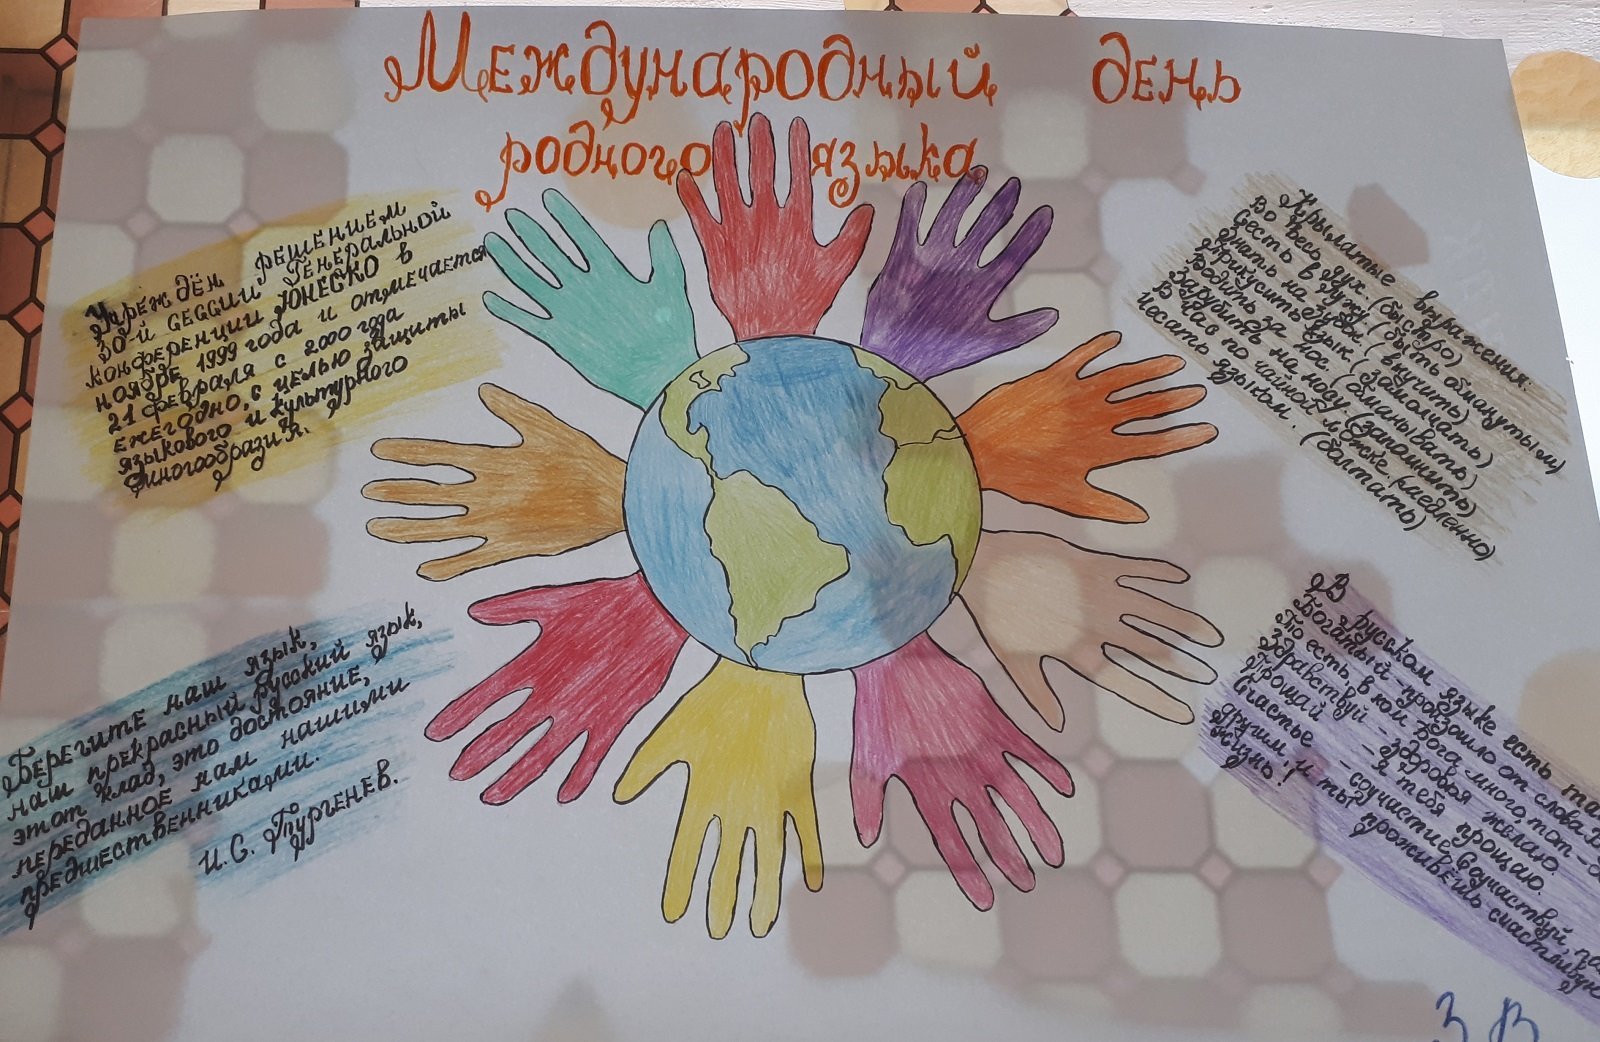 Международный день
родного языка
Учреждён решением
30-й сессии Генеральной
конференции ЮНЕСКО в
ноябре 1999 года и отмечается
21 февраля с 2000 года
ежегодно, с целью защиты
языкового и культурного
многообразия.
Крылатые выражения:
Во весь дух. (быстро)
Сесть в лужу. (быть обманутым)
Знать на зубок (выучить)
Прикусить язык (замолчать)
Водить за нос. (обманывать)
Зарубить на носу. (запомнить)
В час по чайной ложке. (медленно)
Чесать языком. (болтать)
Берегите наш язык,
наш прекрасный русский язык,
этот клад, это достояние,
переданное нам нашими
предшественниками.
И.С. Тургенев.
В русском языке есть
Богатый - произошло от слова
То есть, в ком Бога много, тот -
Здравствуй - здоровья желаю.
Прощай - я тебя прощаю.
Счастье - соучастие. Соучаствуй,
другим и ты проживёшь счастливую
жизнь!
3 В